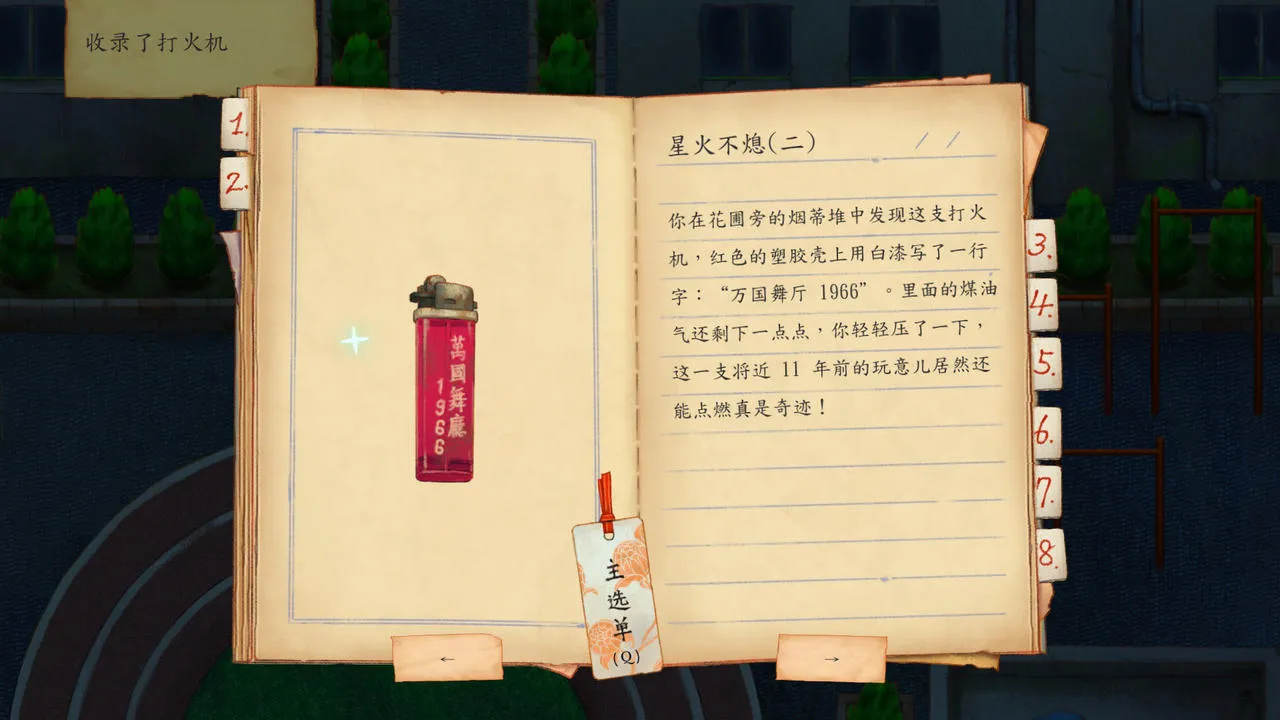 收录了打火机
1.
2.
萬國舞廳
1966
星火不熄(二)
/ /
你在花圃旁的烟蒂堆中发现这支打火
机，红色的塑胶壳上用白漆写了一行
字：“万国舞厅 1966”。里面的煤油
气还剩下一点点，你轻轻压了一下，
这一支将近 11 年前的玩意儿居然还
能点燃真是奇迹！
3.
4.
5.
6.
7.
8.
主选单
(Q)
←
→